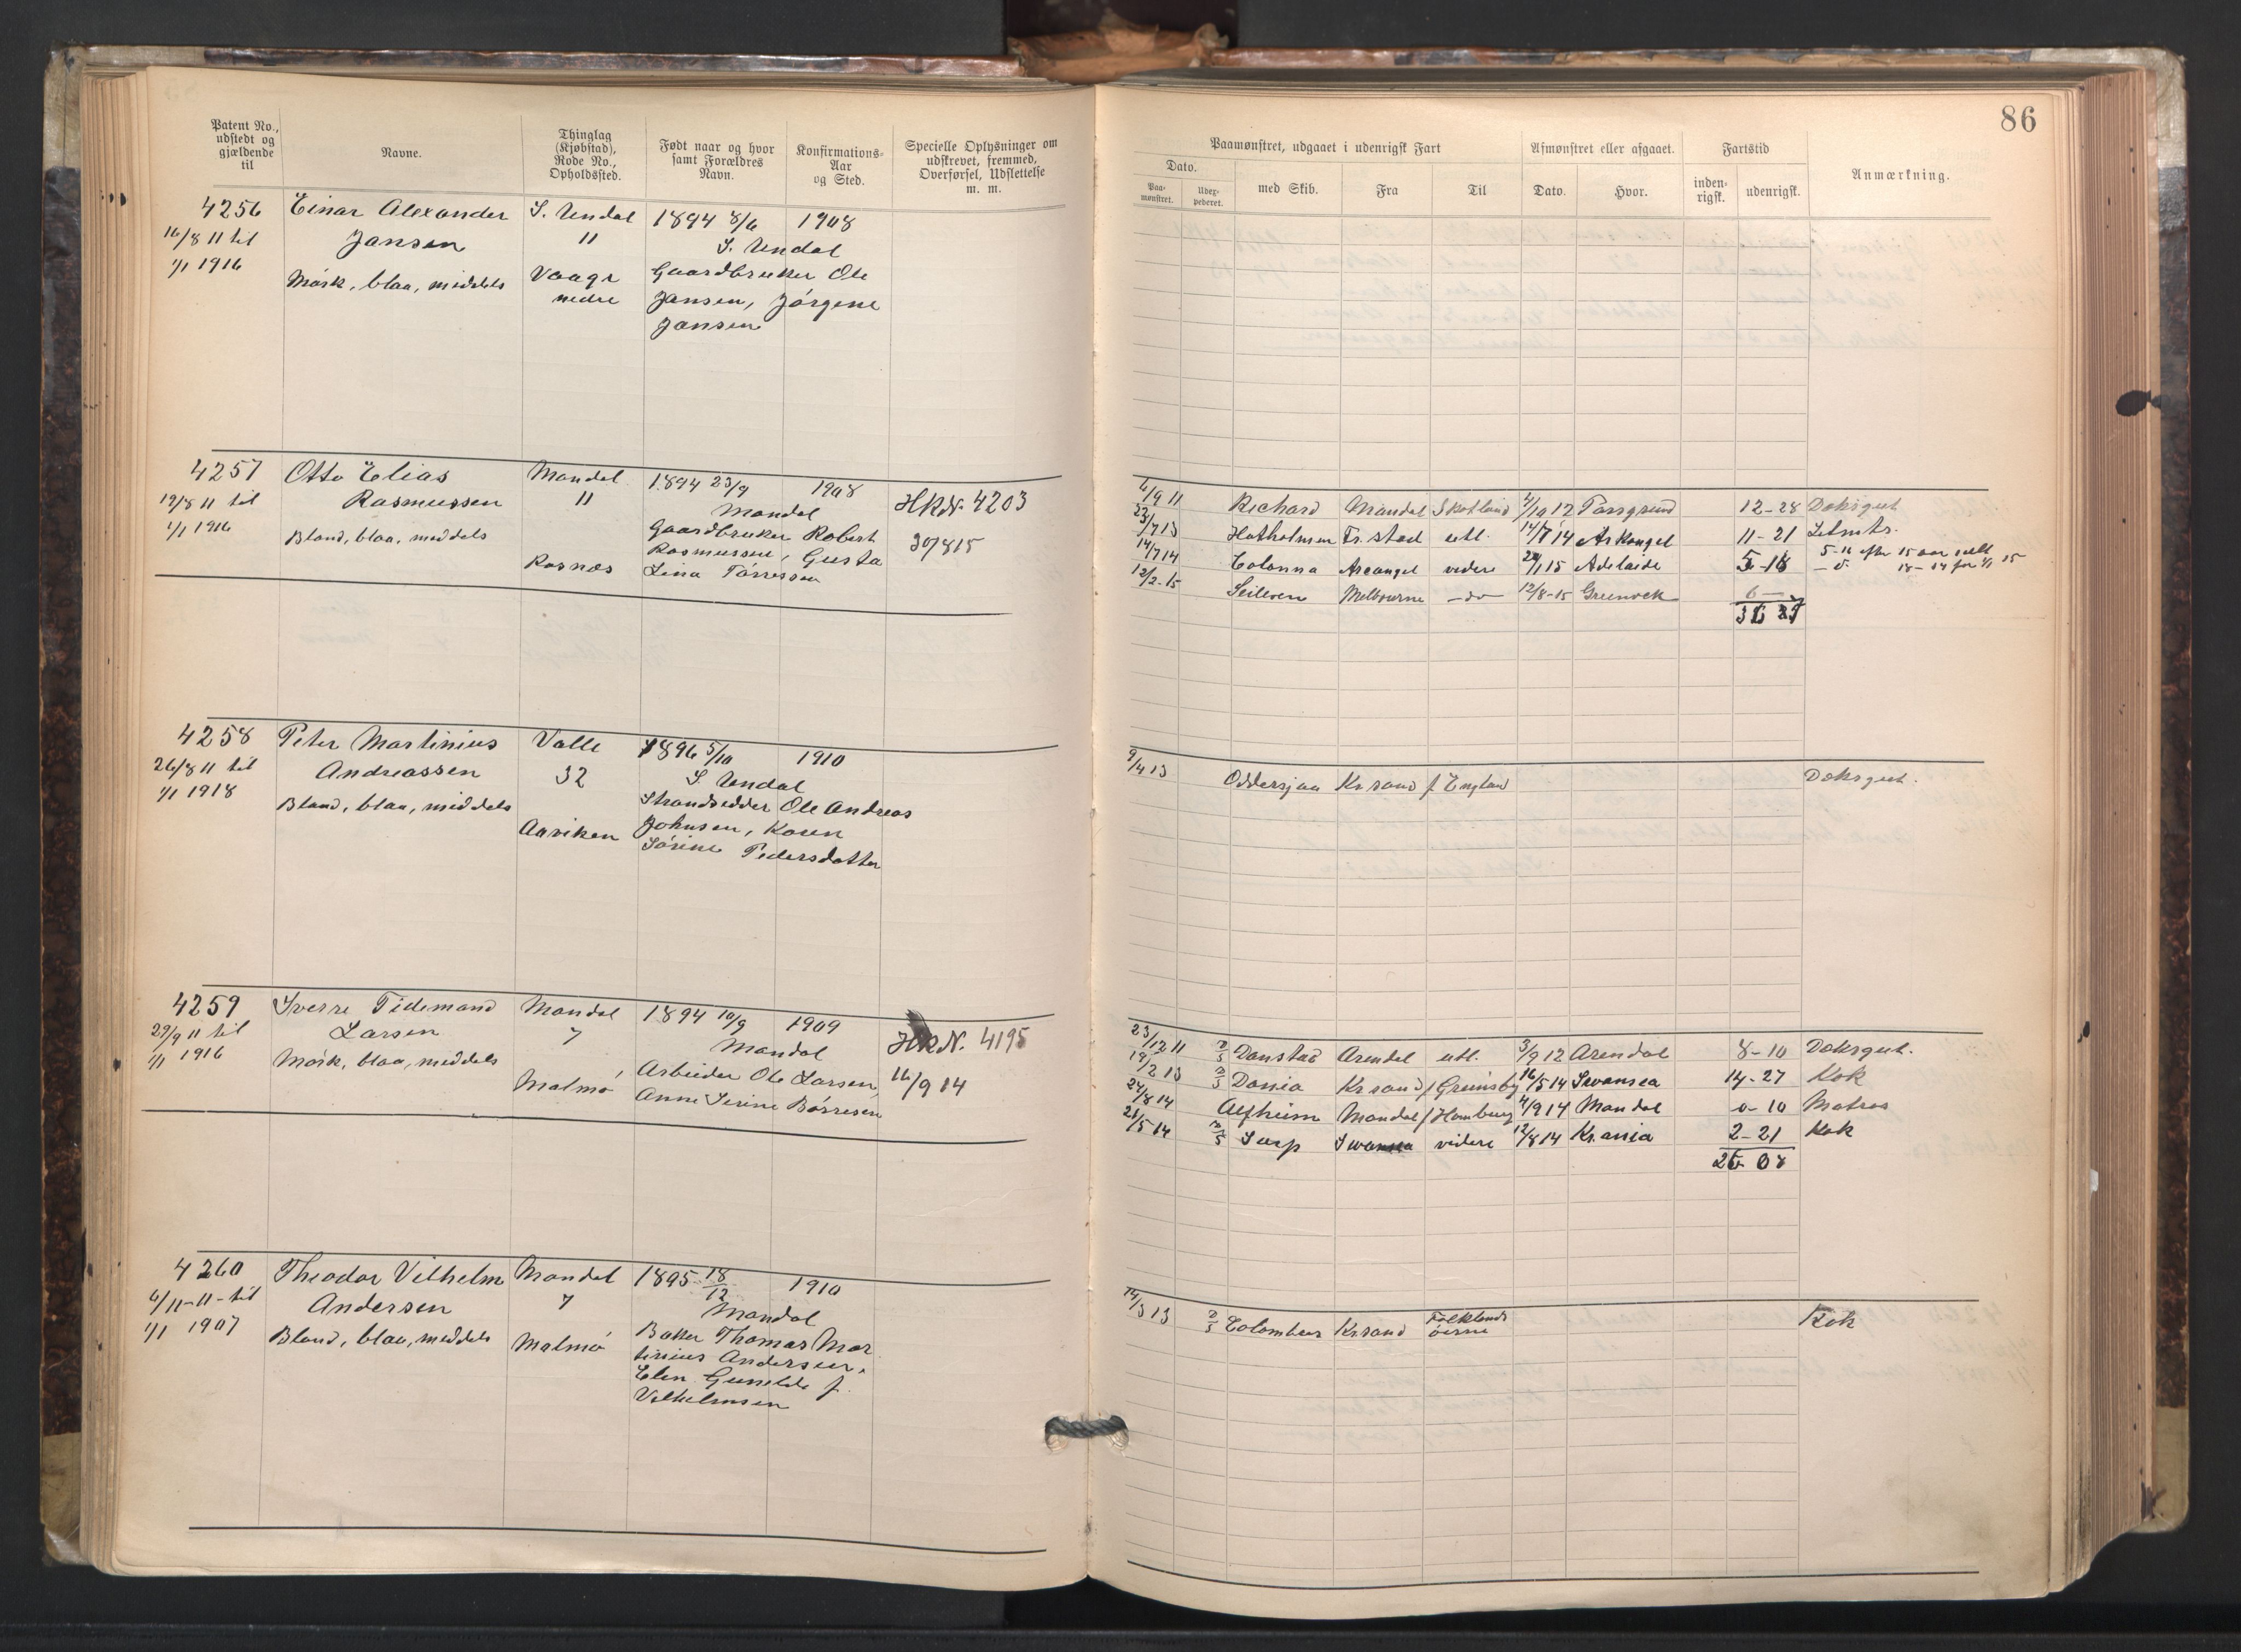 86
Patent No., udstedt og gjældende til
Navne.
Thinglag (Kjøbstad), Rode No., Opholdssted.
Født naar og hvor samt Forældres Navn.
Konfirmations-Aar og Sted.
Specielle Oplysninger om udskrevet, fremmed, Overførsel, Udslettelse m. m.
Paamønstret, udgaaet i udenrigsk Fart
Afmønstret eller afgaaet.
Fartstid
Anmærkning.
Dato.
Paa-mønstret.
Uder-pederet.
med Skib.
Fra
Til
Dato.
Hvor.
inden-rigsk.
udenrigsk.
4256 Einar Alexander S. Undal 1894 8/6 1908
16/8 11 til Jansen 11 S. Undal
1/1 1916 Mörk, blaa, middels Vaage Gaardbruker Ole
nedre Jansen, Jörgene
Jansen
4257 Otto Elias Mandal 1894 23/9 1908 HKN. 4203
19/8 11 til Rasmussen 11 Mandal
1/1 1916 Blond, blaa, middels Gaardbruker Robert 30/8 15
Rasmussen, Gusta
Rosnæs Lina Törressen
6/9 11 Richard Mandal Skotland 4/10 12 Porsgrund 12-28 Doksgut
23/7 13 Hatholmen Fr.stad utl. 14/7 14 Arkangel 11-21 Letmtr.
14/7 14 Colonna Arcangel videre 29/1 15 Adelaide 5-18
12/2-15 Seileren Melbourne -do- 12/8-15 Greenock 6-
4258 Peter Martinius Valle 1896 5/10 1910
26/8 11 til Andreassen 32 S Undal
1/1 1918 Blond, blaa, middels Strandsidder Ole Andreas
Aariken Johnsen, Karen
Sörine Pedersdatter
9/4 13 Oddersjaa Kr.sand f England Doksgut.
4259 Sverre Tidemand Mandal 1894 10/9 1909 HKN. 4195
29/9 11 til Larsen 7 Mandal
1/1 1916 Mörk, blaa, middels Malmö Arbeider Ole Larsen, 16/9 14
Anne Serine Börresen
23/12 11 Danstad Arendal utl. 3/9 12 Arendal 8-10 Doksgut.
19/2 13 Dania Kr.sand f Grimsby 16/5 14 Swansea 14-27 Kok
24/8 14 Alfheim Mandal f Hamburg 4/9 14 Mandal 0-10 Matros
21/5 14 Sarp Swansea videre 12/8 14 Kr.ania 2-21 Kok
26-08
4260 Theodor Vilhelm Mandal 1895 18/12 1910
6/11-11-til Andersen 7 Mandal
1/1 1907 Blond, blaa, middels Malmö Baker Thomas Mar
tinius Andersen,
Elen Gunelde f.
Vilhelmsen
14/3 13 Colombus Kr.sand Falklands Kok
öerne